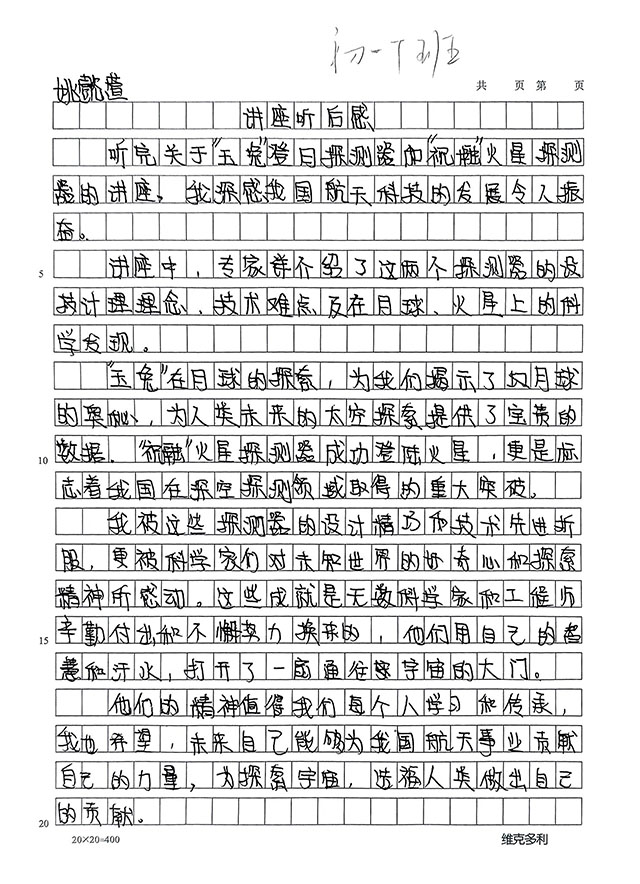 初一十班
共 页 第 页
姚懿
讲座听后感
听完关于“玉兔”登月探测器和“祝融”火星探测
器的讲座，我深感我国航天科技的发展令人振
奋。
5
讲座中，专家详介绍了这两个探测器的设
计理理念、技术难点及在月球、火星上的科
学发现。
“玉兔”在月球的探索，为我们揭示了月球
的奥秘，为人类未来的太空探索提供了宝贵的
10
数据．“祝融”火星探测器成功登陆火星，更是标
志着我国在深空探测领域取得的重大突破。
我被这些探测器的设计精巧和技术先进折
服，更被科学家们对未知世界的好奇心和探索
精神所感动。这些成就是无数科学家和工程师
15
辛勤付出和不懈努力换来的，他们用自己的智
慧和汗水，打开了一扇通往宇宙的大门。
他们的精神值得我们每个人学习和传承，
我也希望，未来自己能够为我国航天事业贡献
自己的力量，为探索宇宙，造福人类做出自己
20
的贡献。
20×20=400
维克多利